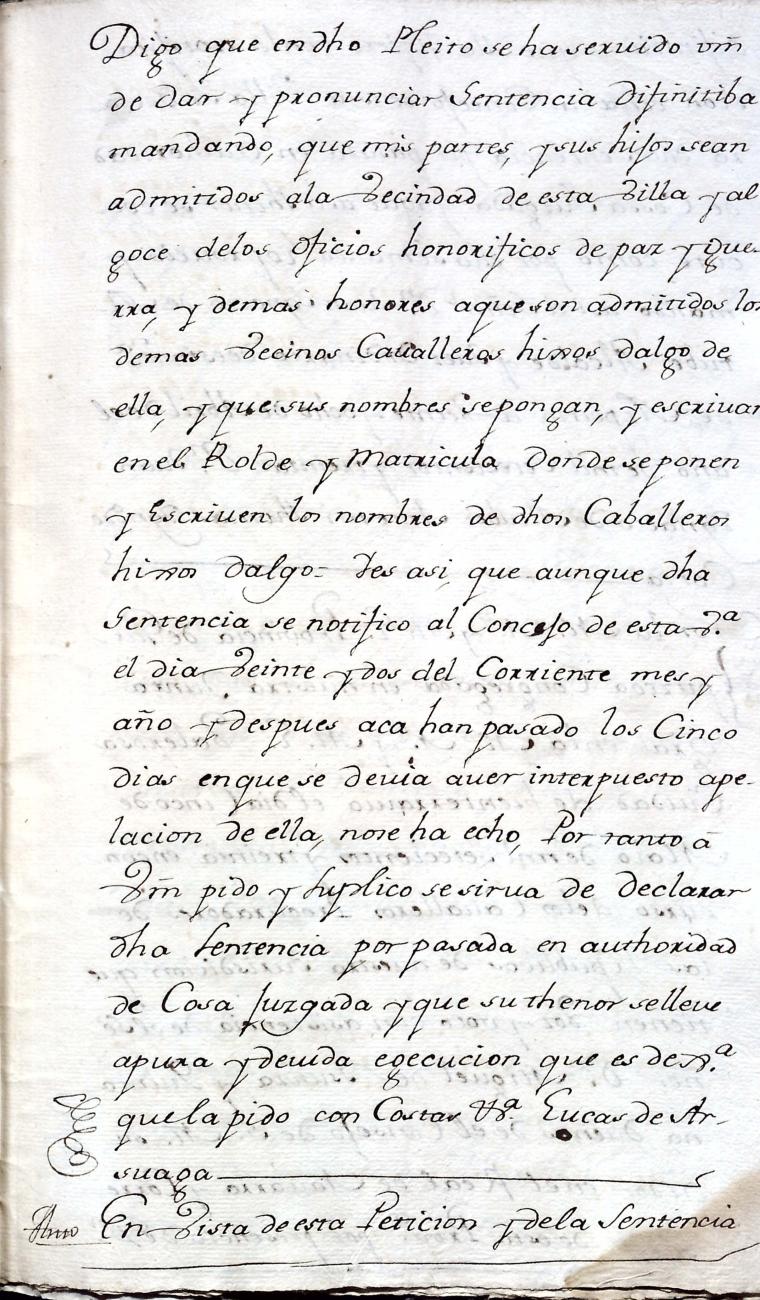 Digo que en dho Pleito se ha seruido vm̃
de dar y pronunciar Sentencia difinitiba
mandando, que mis partes, y sus hijos sean
admitidos a la Vecindad de esta Villa y al
goce de los oficios honorificos de paz y gue-
rra, y demas honores a que son admitidos los
demas Vecinos Caualleros hixos dalgo de
ella, y que sus nombres se pongan, y escriuan
en el Rolde y Matricula donde se ponen
y Escriuen los nombres de dhos Caballeros
hixos dalgo= Y es asi, que aunque dha
Sentencia se notifico al Concejo de esta V.ª
el dia Veinte y dos del Corriente mes y
año y despues aca han pasado los Cinco
dias en que se deuia auer interpuesto ape-
lacion de ella, no se ha echo, Por tanto â
Vm̃ pido y suplico se sirua de declarar
dha Sentencia por pasada en authoridad
de Cosa Juzgada y que su thenor se lleue
a pura y deuida egecucion que es de
que la pido con Costas Lucas de Ar-
suaga
Auto En Vista de esta Peticion y de la Sentencia